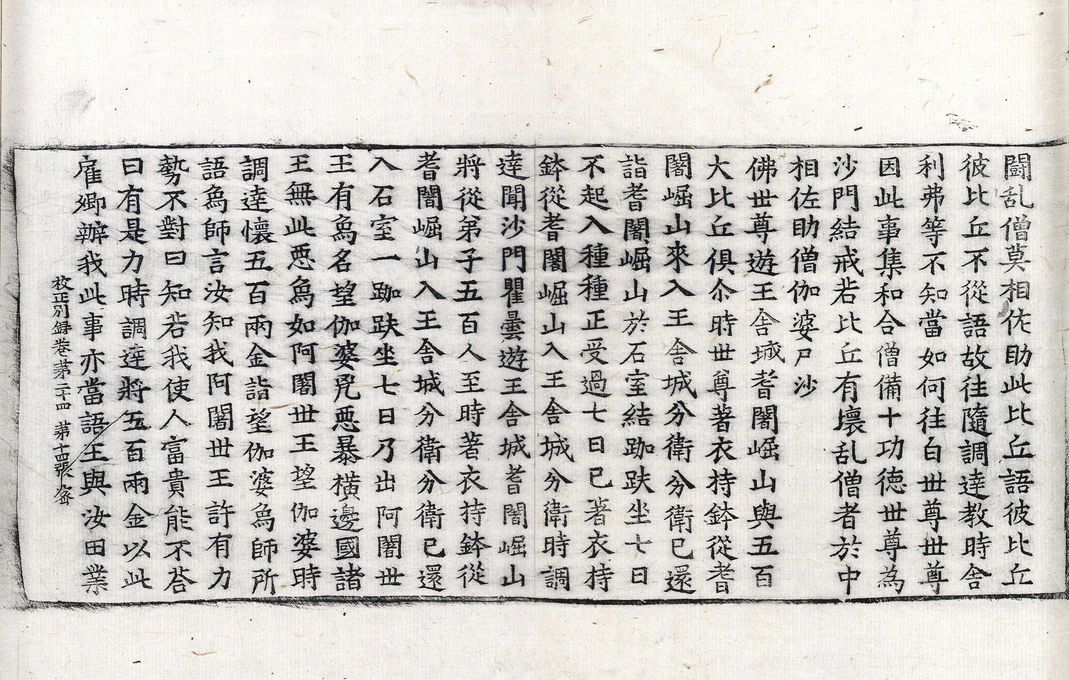 闘乱僧莫相佐助此比丘語彼比丘
彼比丘不從語故往隨調達教時舎
利弗等不知當如何往白世尊世尊
因此事集和合僧備十功徳世尊為
沙門結戒若比丘有壞乱僧者於中
相佐助僧伽婆尸沙
佛世尊遊王舎城耆闍崛山與五百
大比丘俱尒時世尊著衣持鉢從耆
闍崛山來入王舎城分衛分衛已還
詣耆闍崛山於石室結跏趺坐七日
不起入種種正受過七日已著衣持
鉢從耆闍崛山入王舎城分衛時調
達聞沙門瞿曇遊王舎城耆闍崛山
將從弟子五百人至時著衣持鉢從
耆闍崛山入王舎城分衛分衛已還
入石室一跏趺坐七日乃出阿闍世
王有爲名望伽婆兇惡暴橫邊國諸
王無此惡爲如阿闍世王望伽婆時
調達懷五百兩金詣望伽婆爲師所
語爲師言汝知我阿闍世王許有力
勢不對曰知若我使人富貴能不荅
曰有是力時調達將五百兩金以此
雇卿辦我此事亦當語王與汝田業
校正別録卷第二十四 第十五張